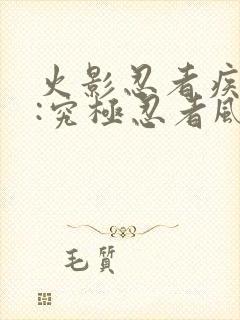 火影忍者疾
:究極忍者風
毛質